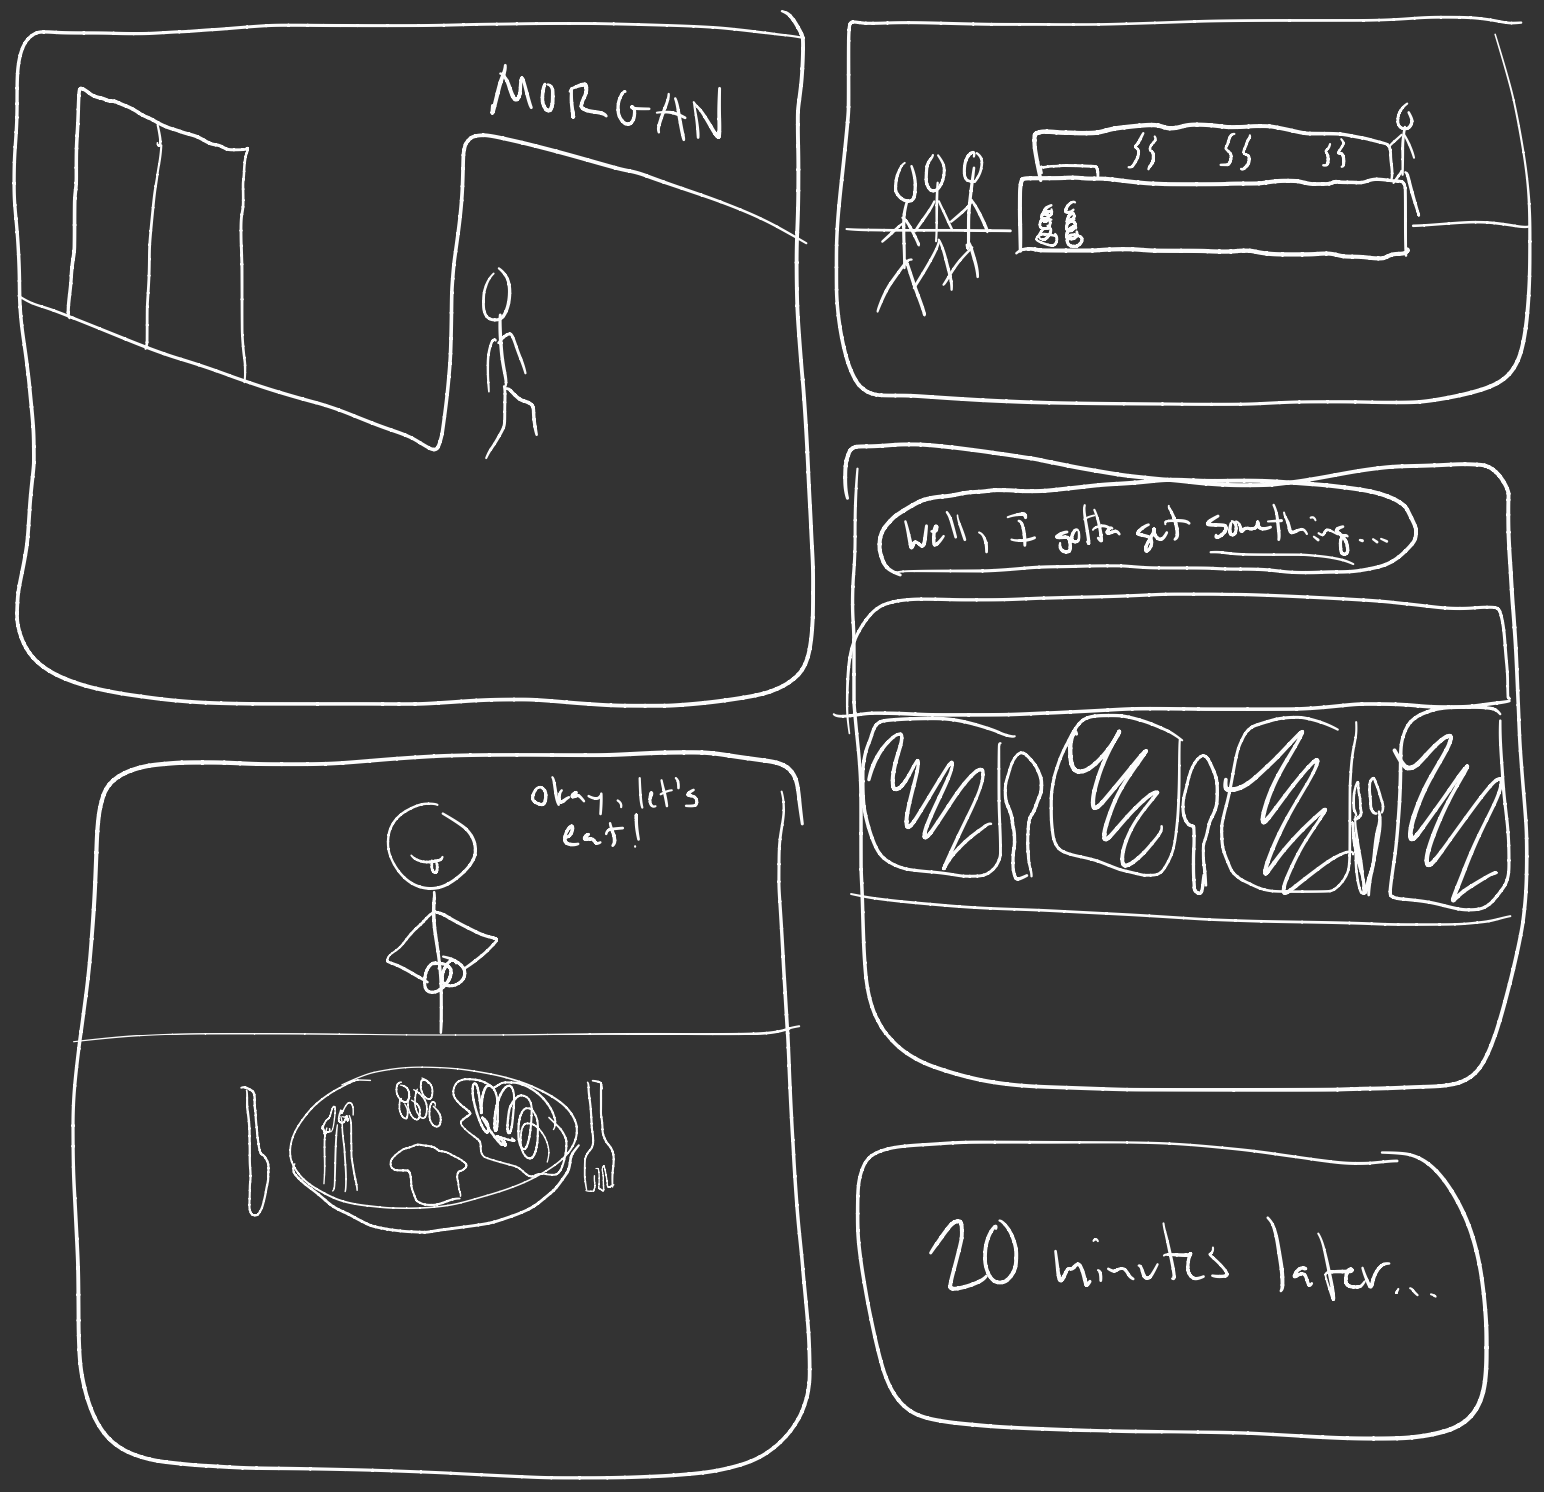 MORGAN
Well, I gotta get something...
okay, let's
eat!
20 minutes later...